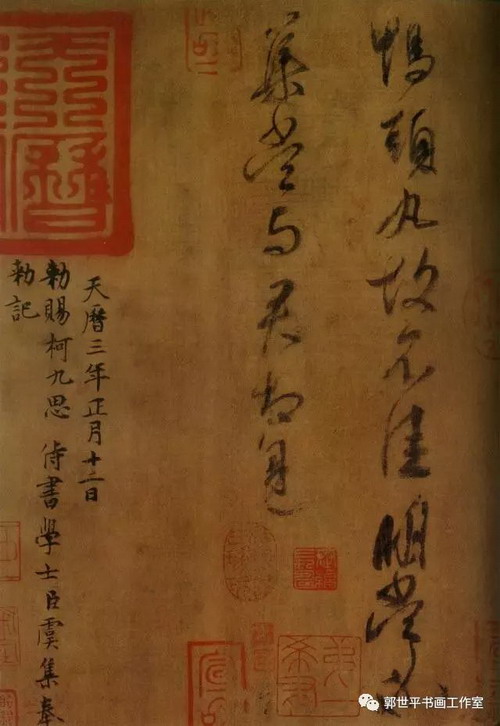 鴨頭丸故不佳明當必
集當与君相見
天曆三年正月十二日
勑賜柯九思侍書學士臣虞集奉
勑記
郭世平书画工作室